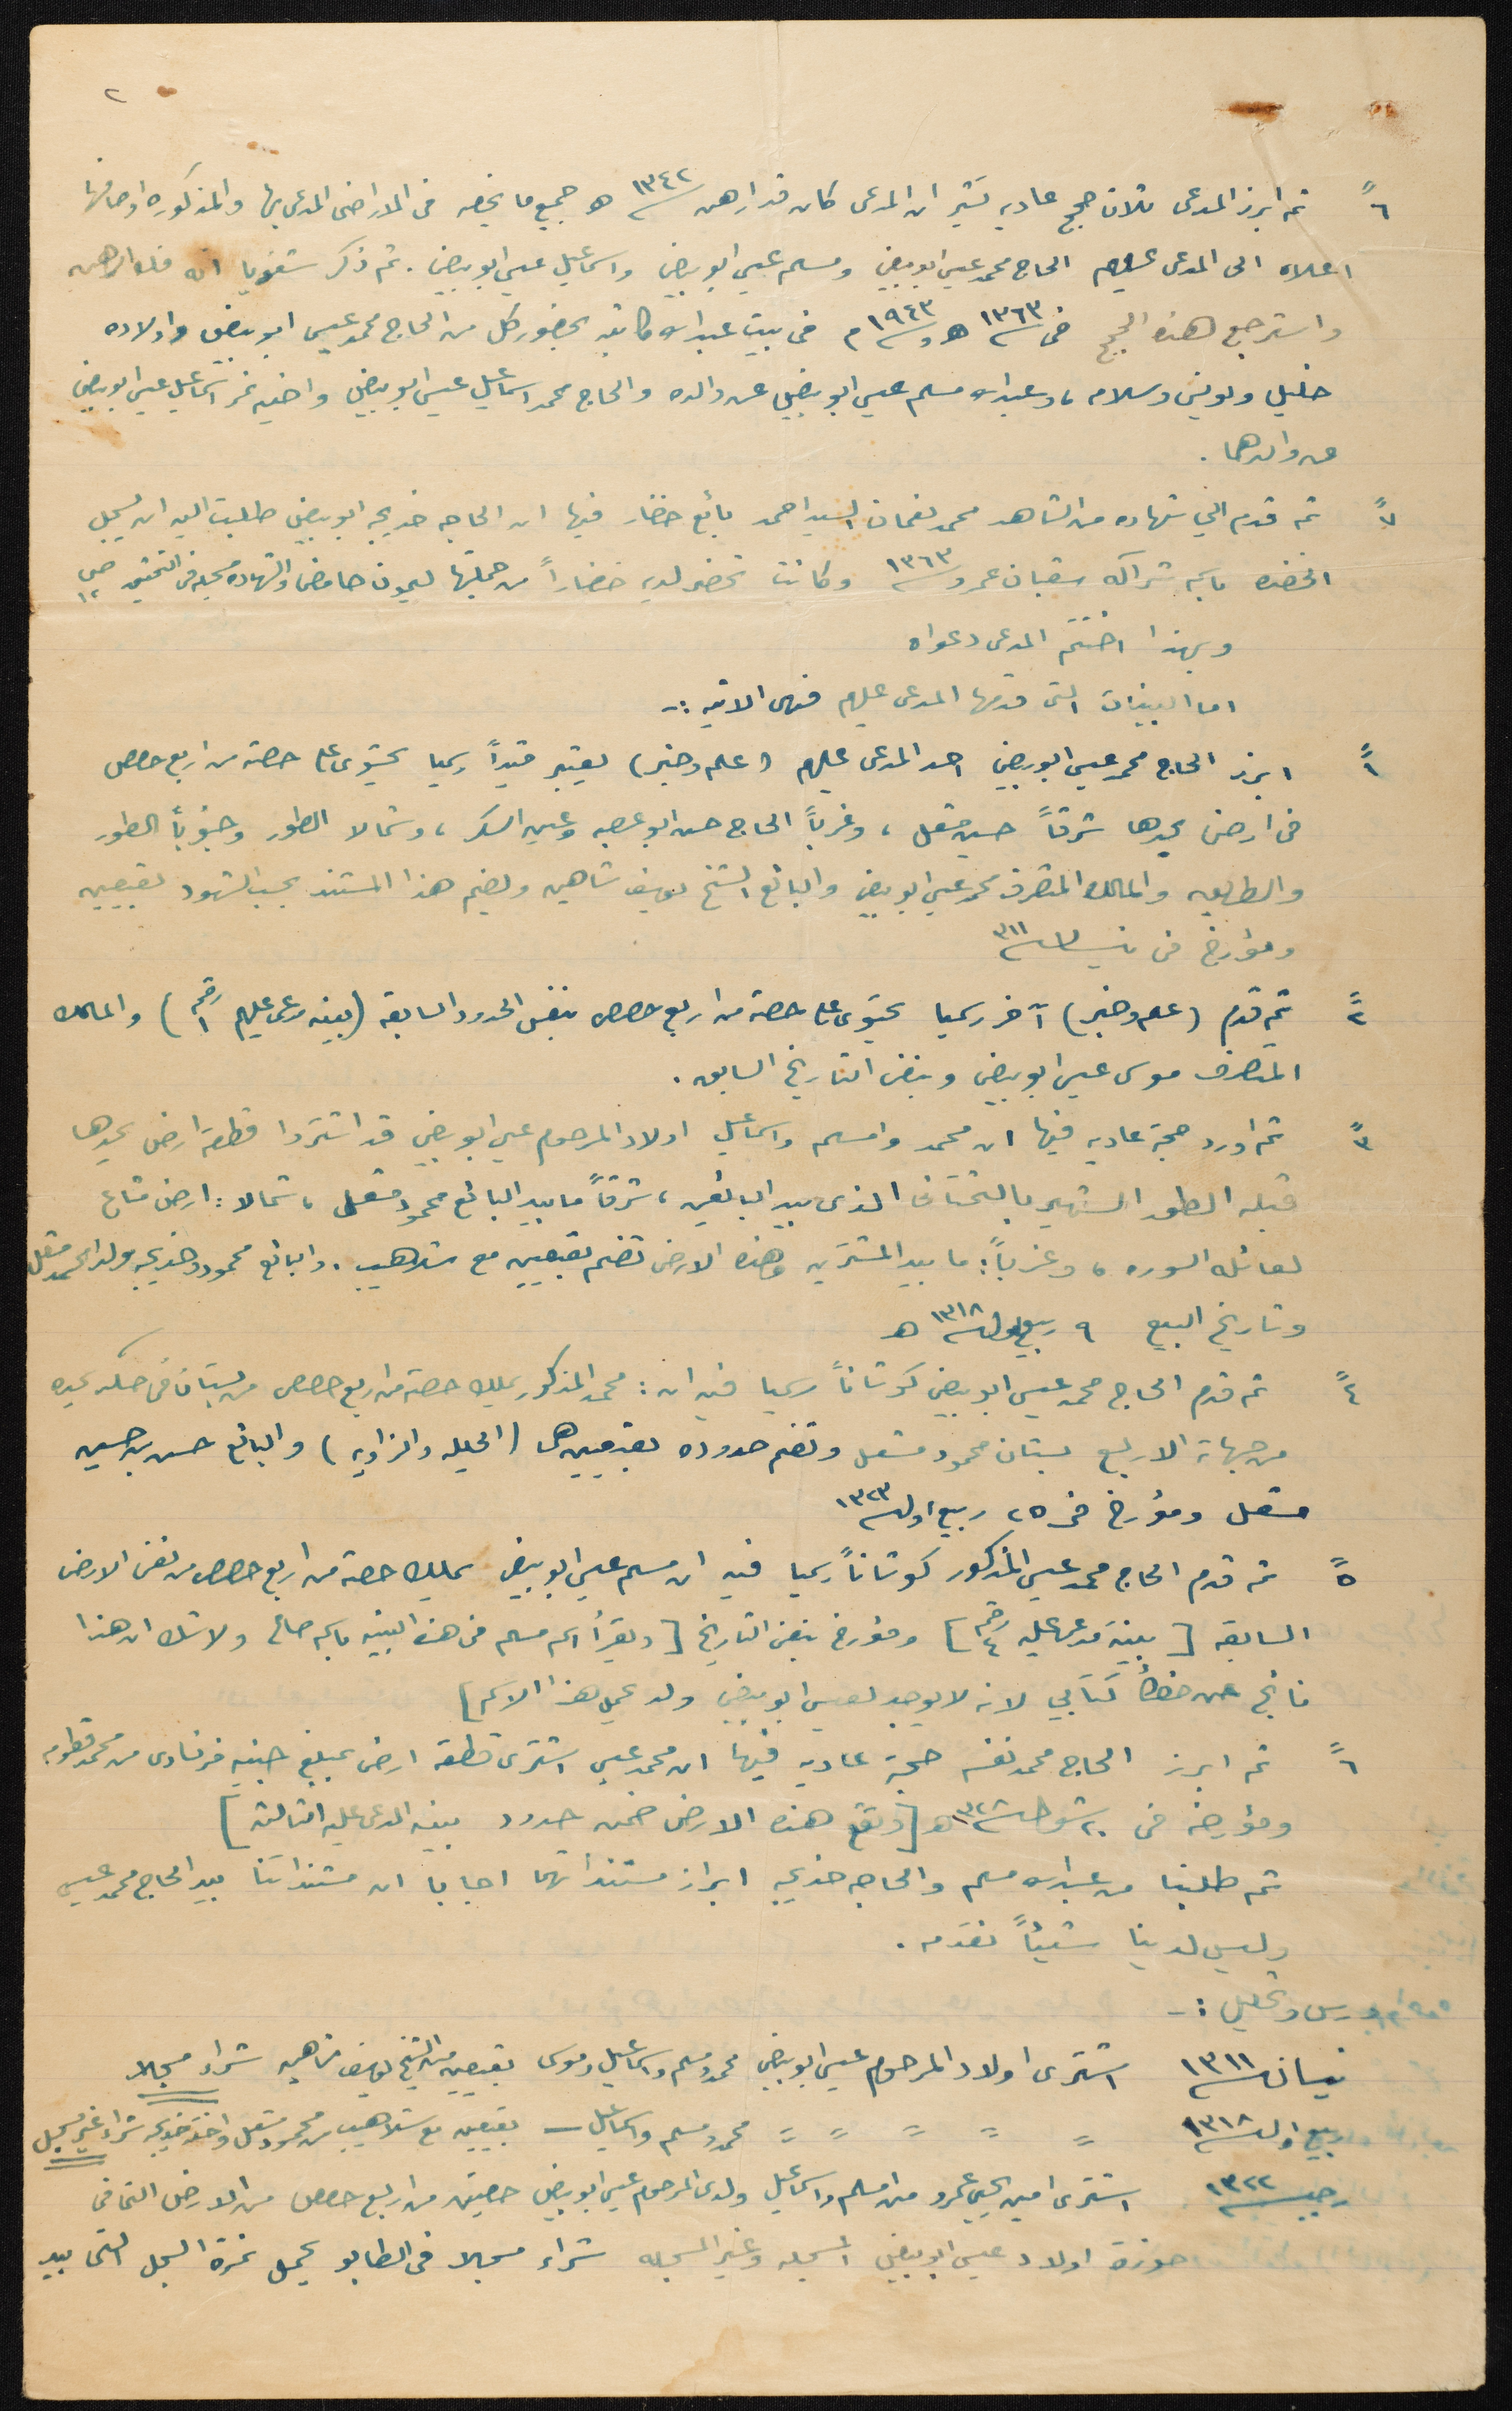 ٢
٦ً ثم ابرز المدعى ثلاث حجج عاديه تشير ان المدعى كان قد ارهن سنة ١٣٤٢ هـ جميع ما يخصه في الاراضى المدعى بها والمذكوره اوصافها
اعلاه الى المدعى عليهم الحاج محمد عيسى ابو بيض ومسلم عيسى ابو بيض واسماعيل عيسى ابو بيض . ثم ذكر شفويا انه فك الرهن
واسترجع هذه الحجج في سنة ١٣٦٣ هـ و سنة ١٩٤٣ م في بيت عبد الله كاتبه بحضور كل من الحاج محمد عيسى ابو بيض واولاده
خليل ولويس وسلامه ، وعبد الله مسلم عيسى ابو بيض عن والده والحاج محمد اسماعيل عيسى ابو بيض واخيه نمر اسماعيل عيسى ابو بيض
عن والدهما .
٧ً ثم قدم الي شهاده من الشاهد محمد نعمان السيد احمد بائع خضار فيها ان الحاجه خديجه ابو بيض طلبت اليه ان يسجل
الخضره باسم شراكه شعبان عمرو سنة ١٣٦٣ وكانت تحضر لديه خضاراً من جملتها ليمون حامض والشهادة مسجله في التحقيق ص ١٢
وبهذا اختتم المدعى دعواه
اما البينات التى قدمها المدعى عليهم فهى الاتيه :-
١ً ابرز الحاج محمد عيسى ابو بيض احد المدعى عليهم ( علم وخبر ) يعتبر قيداً رسميا يحتوى على حصة من اربع حصص
في ارض يحدها شرقاً حسين مشعل ، وغرباً الحاج حسن ابو عصبه وعين السكر ، وشمالا الطور وجنوباً الطور
والطريق والمالك المتصرف محمد عيسى ابو بيض والبائع الشيخ يوسف شاهين ويضم هذا المستند بحسب الشهود بقيعين
ومؤرخ في نيسان سنة ٣١١
٢ً ثم قدم ( علم وخبر ) آخر رسميا يحتوى على حصة من اربع حصص بنفس الحدود السابقة ( بينه مدعى عليهم رقم ١ ) والمالك
المتصرف موسى عيسى ابو بيض وبنفس التاريخ السابق .
٣ً ثم اورد حجة عاديه فيها ان محمد وامسلم واسماعيل اولاد المرحوم عيسى ابو بيض قد اشتروا قطعة ارض يحدها
قبله الطور الشهير بالتحتانى الذى بيد البائعين ، شرقاً ما بيد البائع محمود مشعل ، شمالا : ارض مشاع
لعائلة السوره ، وغرباً : ما بيد المشترين وهذه الارض تضم بقيعين مع شلاهيب . والبائع محمود وخديجه ولدا محمد مشعل
وتاريخ البيع ٩ ربيع اول سنة ١٣١٨ هـ
٤ً ثم قدم الحاج محمد عيسى ابو بيض كوشاناً رسميا فيه ان : محمد المذكور يملك حصة من اربع حصص من بستان في حكر يحده
من جهاته الاربع بستان محمود مشعل وتضم حدوده بقيعين هما ( الحيله والزاويه ) والبائع حسن بن حسين
مشعل ومؤرخ في ٢٥ ربيع اول سنة ١٣٢٣
٥ً ثم قدم الحاج محمد عيسى المذكور كوشاناً رسميا فيه ان مسلم عيسى ابو بيض يملك حصة من اربع حصص من نفس الارض
السابقه [ بينة مدعى عليه رقم ٤ ] ومؤرخ بنفس التاريخ [ ويقرأ اسم مسلم في هذه البينه باسم صالح ولا شك ان هذا
ناتج عن خطأ كتابي لانه لا يوجد لعيسى ابو بيض ولد يحمل هذا الاسم ]
٦ً ثم ابرز الحاج محمد نفسه حجة عاديه فيها ان محمد عيسى اشترى قطعة ارض بمبلغ جنيه فرنساوى من محمد قطومه
ومؤرخه في ٢٠ شوال سنة ١٣٢٨ هـ [ وتقع هذه الارض ضمن حدود بينه المدعى عليه الثالثه ]
ثم طلبنا من عبد الله مسلم والحاجه خديجه ابراز مستنداتهما اجابا ان مستنداتنا بيد الحاج محمد عيسى
وليس لدينا شيئاً نقدمه .
درس وتحليل :-
نيسان سنة ١٣١١ اشترى اولاد المرحوم عيسى ابو بيض محمد ومسلم واسماعيل وموسى بقيعين من الشيخ يوسف شاهين شراء مسجلا
ربيع اول سنة ١٣١٨ = = = = = محمد ومسلم واسماعيل – بقيعين مع شلاهيب من محمود مشعل واخته خديجه شراء غير مسجل
رجب سنة ١٣٢٢ اشترى امين يحيى عمرو من امسلم واسماعيل ولدى المرحوم عيسى ابو بيض حصتين من اربع حصص من الارض التى في
حوزة اولاد عيسى ابو بيض المسجله وغير المسجله شراء مسجلا في الطابو يحمل نمرة السجل التى بيد